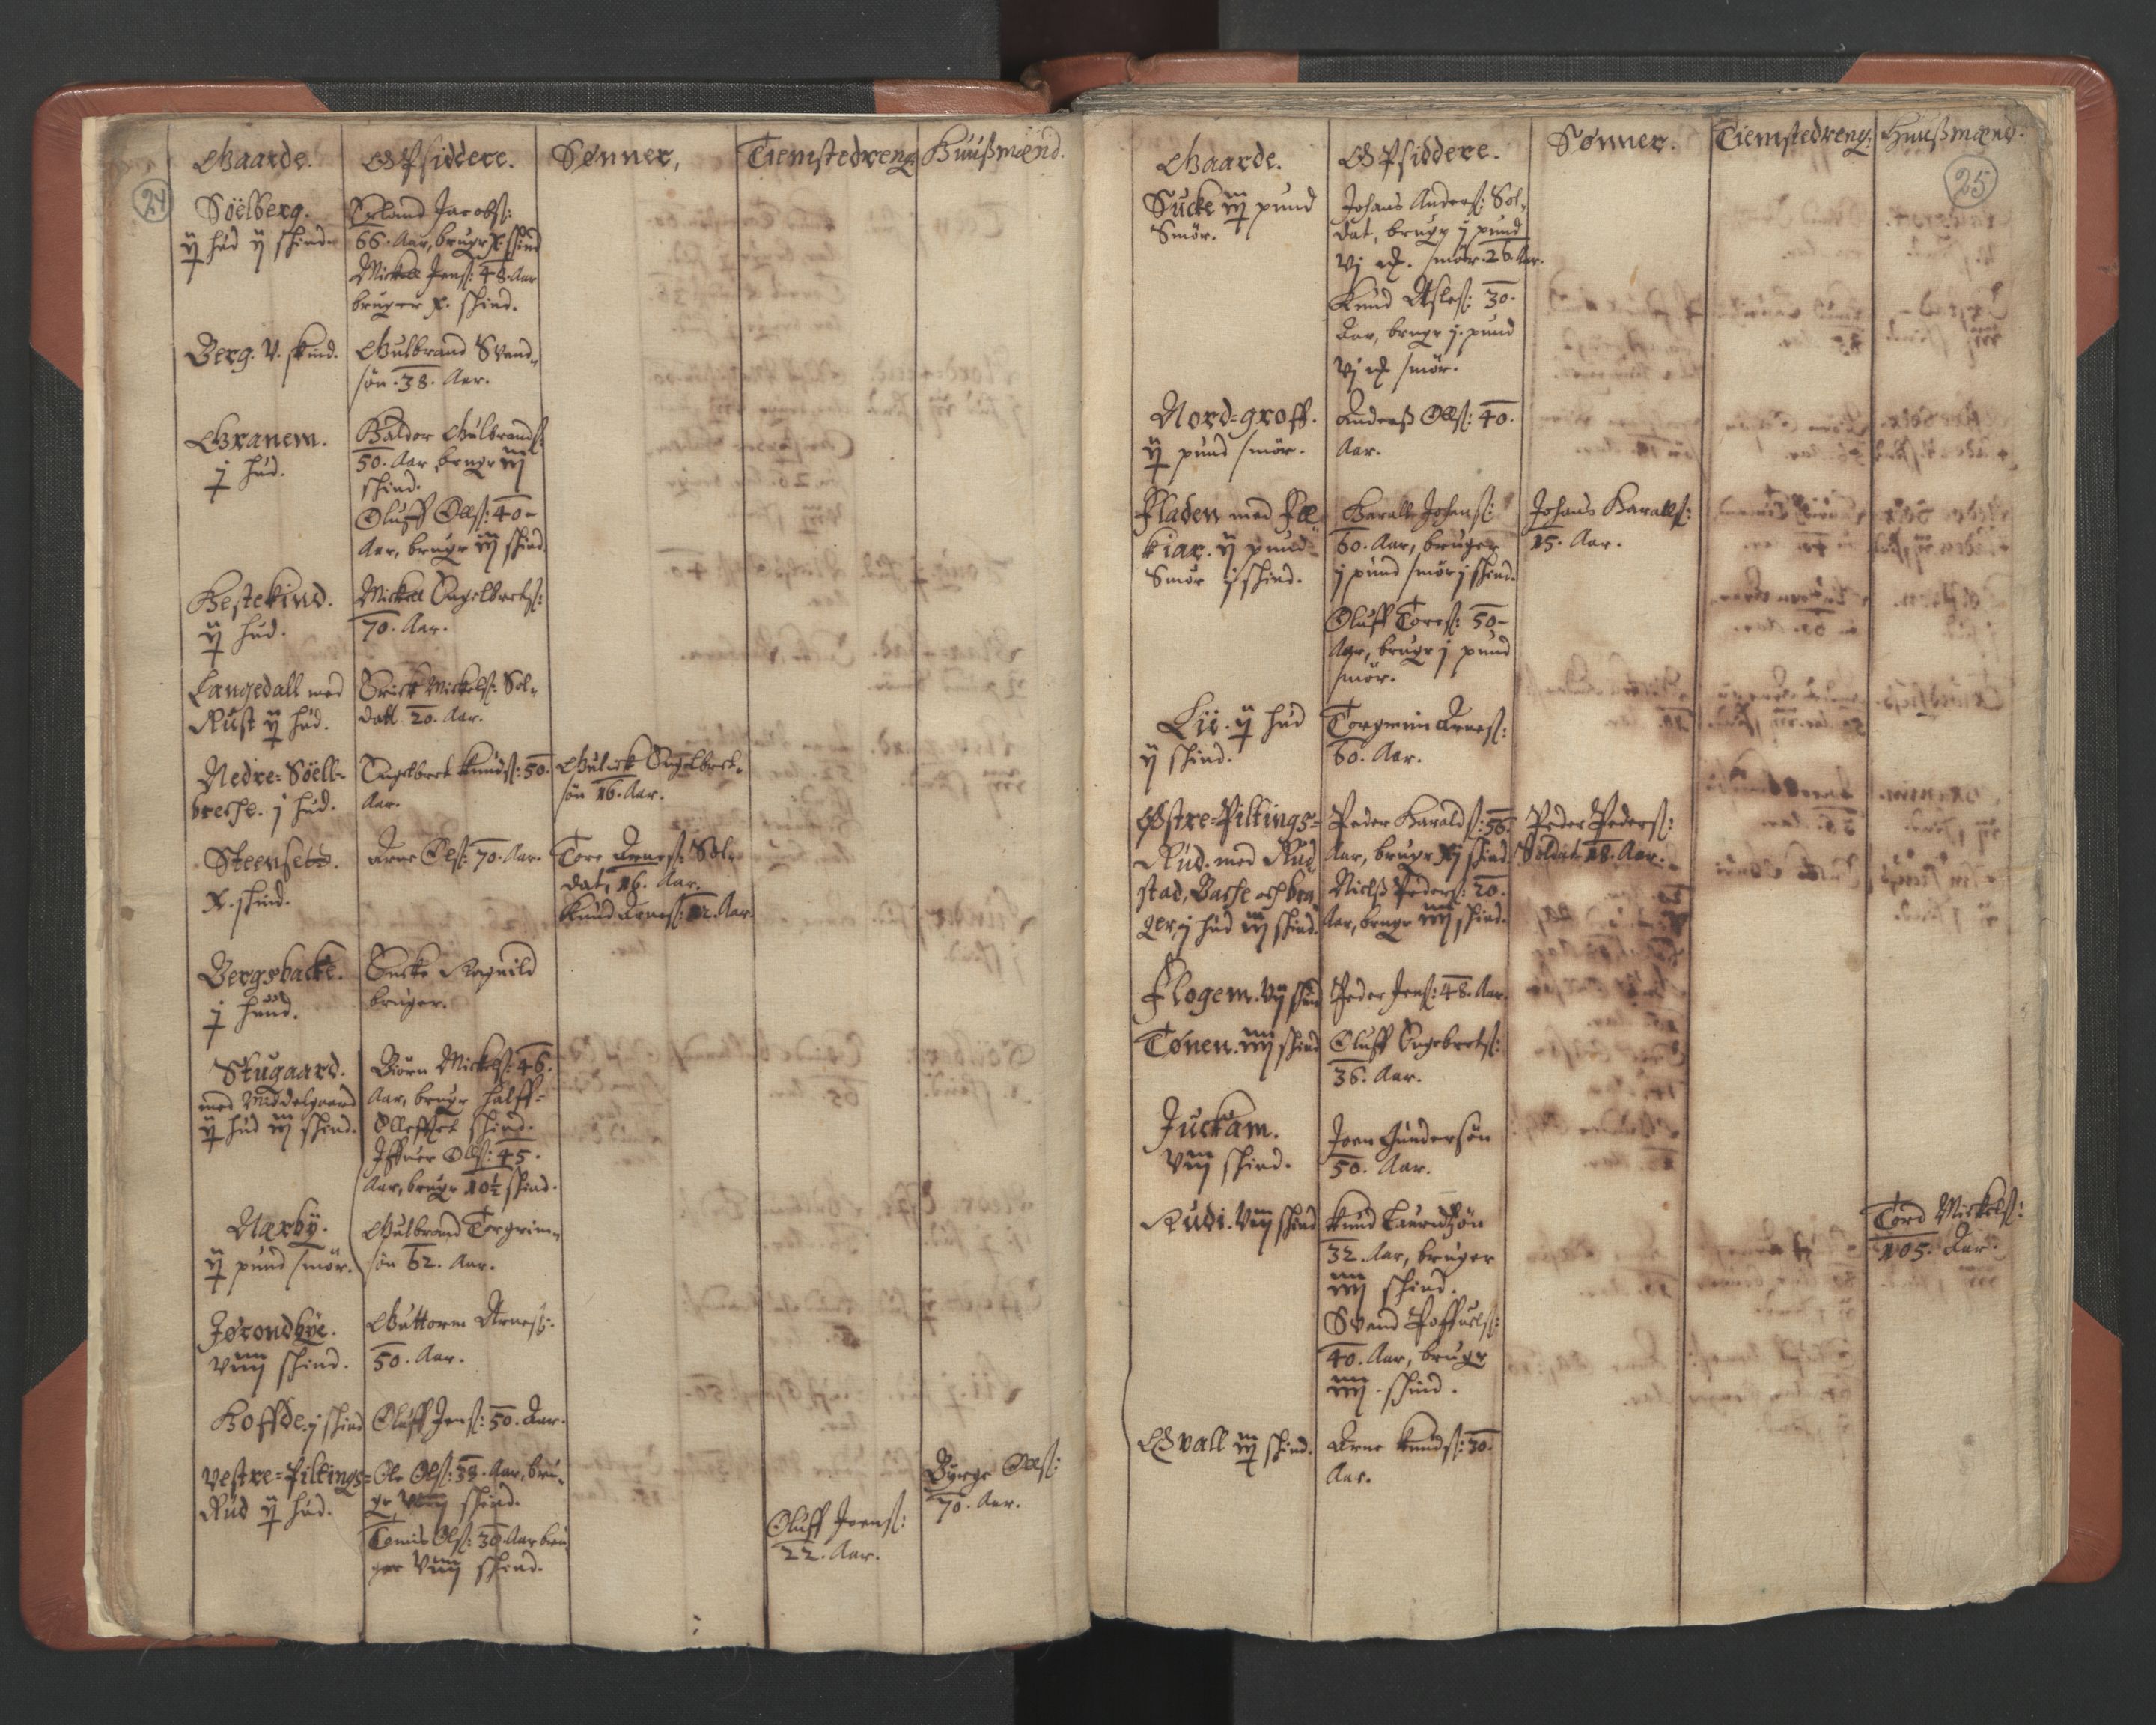 24
Gaarde. Opsiddere. Sønner, Tienistedreng: Huußmænd.
Söelberg.
ij hud ij skind
Erland Jacobs:
66. Aar, brugr x skind
Mickell Jens: 48. Aar
bruger x. skind.
Berg. v. skind.
Gulbrand Svend-
søn. 38. Aar.
Granem.
j hud.
Haldor Gulbrands:
50. Aar brugr iij
skind.
Oluff Olls: 40-
Aar, brugr iij skind
Hestekind.
ij hud.
Mickell Engelbrets:
70. Aar.
Langedall med
Rust ij hud.
Erick Mickels: Sol-
datt 20. Aar.
Nedre-Söell-
breche. j hud.
Engelbret Knuds: 50.
Aar.
Gulick Engelbret-
søn 16. Aar.
Steensett.
x. skind.
Arne Ols: 70. Aar.
Tore Arnes: Sol-
dat, 16. Aar.
Knud Arnes: 12. Aar.
Bergsbacke.
j huud.
Encke Ragnild
bruger.
Stugaard.
med Middelgaard
ij hud iij skind.
Biörn Mickels: 46.
Aar, brugr halff-
Olleffet skind.
Iffuer Olls: 45.
Aar, brugr 10½ skind.
Nærby.
ij pund smör.
Gulbrand Torgrim-
søn 62. Aar.
Jørondbÿe.
viiij skind.
Guttorm Arnes:
50. Aar.
Hoffde. j skind
Oluff Jens: 50. Aar.
Vestre-Piltings-
Rud ij hud.
Ole Ols: 38. Aar, bru-
gr viiij skind.
Tomis Ols: 30. Aar bru
ger viiij skind.
Oluff Joens:
22. Aar.
Byrge Oels:
70. Aar.
25
Gaarde. Opsiddere. Sønner. Tienistedreng: Huußmænd.
Sucke iij pund
Smör.
Johans Anders: Sol-
dat, brugr j pund
vj ℔. smör. 26 Aar.
Knud Asles: 30.
Aar, brugr j. pund
vj ℔ smör.
Nord-groff.
ij pund smör.
Anders Olls: 40.
Aar.
Fladen med Fæ-
kiar. ij pund
Smör j skind.
Harall Johans:
60. Aar, bruger
j pund smör j skind.
Oluff Tores: 50-
Aar, brugr j pund
smör.
Johans Haralls:
15. Aar.
Lii. ij hud
ij skind.
Torgrim Arnes:
60. Aar.
Østre-Piltings-
Rud. med Rud
stad, Bache och bra
ger, j hud iij skind.
Peder Haralds: 56.
Aar, brugr xij skind.
Niels Peders: 20.
Aar, brugr iiij skind.
Peder Peders:
Soldat 18. Aar.
Flogem. vij skind
Peder Jens: 48. Aar.
Tonen. iiij skind
Oluff Engebrets:
36. Aar.
Juckam.
viij skind.
Joen Gundersøn
50. Aar.
Rudi. viij skind
Knud Lauridzön
32. Aar, bruger
iiij skind.
Svend Poffuels:
40. Aar, brugr
iiij. skind.
Tord Mickels:
105. Aar.
Qvall iij skind.
Arne Knuds: 30.
Aar.